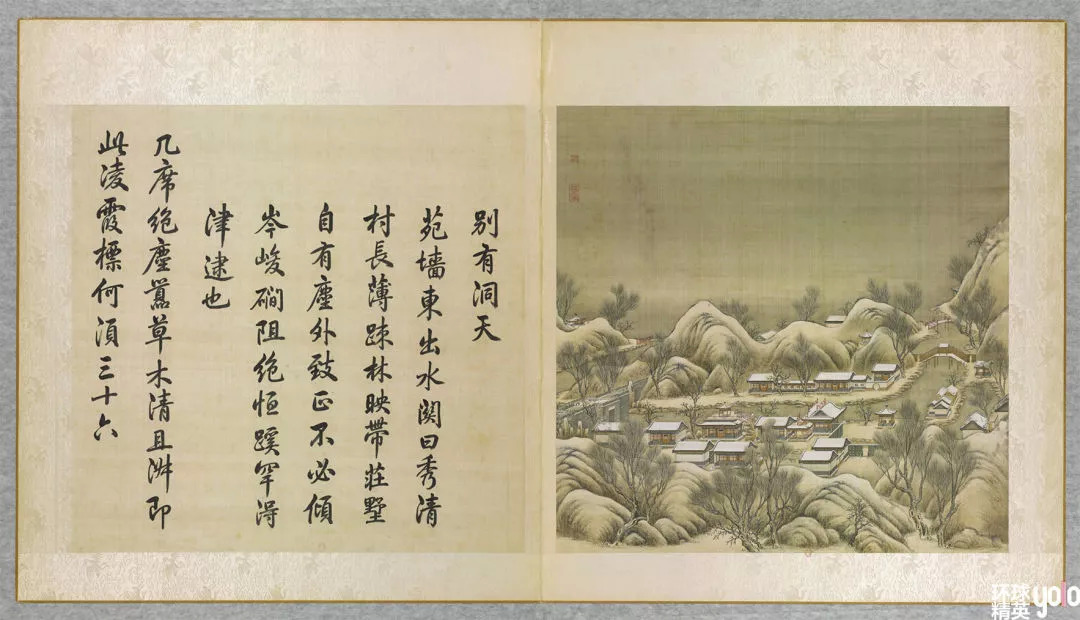 別有洞天
苑墻東出水關曰秀清
村長薄疎林映帶莊墅
自有塵外致正不必傾
岑峻磵阻絶恒蹊罕得
津逮也
几席絶塵囂草木清且淑即
此凌霞標何須三十六
环球
精英
yolo